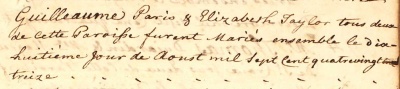 Guilleaume Paris & Elizabeth Taylor tous deux
de cette Paroisse furent Mariés ensemble le dix
huitiéme Jour de Aoust mil Sept Cent quatrevingt
treize